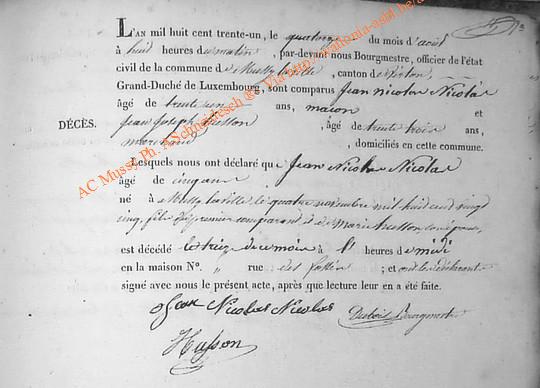 L'AN mil huit cent trente-un, le quatorze du mois d'aout
à huit heures du matin, par-devant nous Bourgmestre, officier de l'état
civil de la commune de Mussy la ville, canton de Virton,
Grand-Duché de Luxembourg, sont comparus Jean nicolas Nicolas
âgé de trente un ans, macon et
DÉCÈS. Jean Joseph husson, âgé de trente trois ans,
marchand, domiciliés en cette commune.
Lesquels nous ont déclaré que Jean Nicolas Nicolas
âgé de cinq ans
né à Mussy la ville, le quatre novembre mil huit cent vingt
cinq, fils du premier comparant et de marie husson son épouse
est décédé le treize de ce mois à heures de midi
en la maison N°. " rue des ; et ont les déclarants
signé avec nous le présent acte, après que lecture leur en a été faite.
Jean Nicolas Nicolas Bourgmestre
Husson
AC Mussy Ph. Schneidesch © Via http://